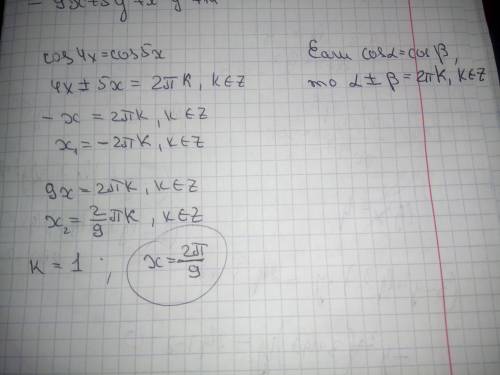 cos4x=cos5x
4x±5x = 2πk, k∈Z
-x = 2πk, k∈Z
x₁=-2πk, k∈Z
9x=2πk, k∈Z
x₂=2/9 πk, k∈Z
k = 1 ; x=2π/9
Если cosα=cosβ,
то α±β=2πk, k∈Z